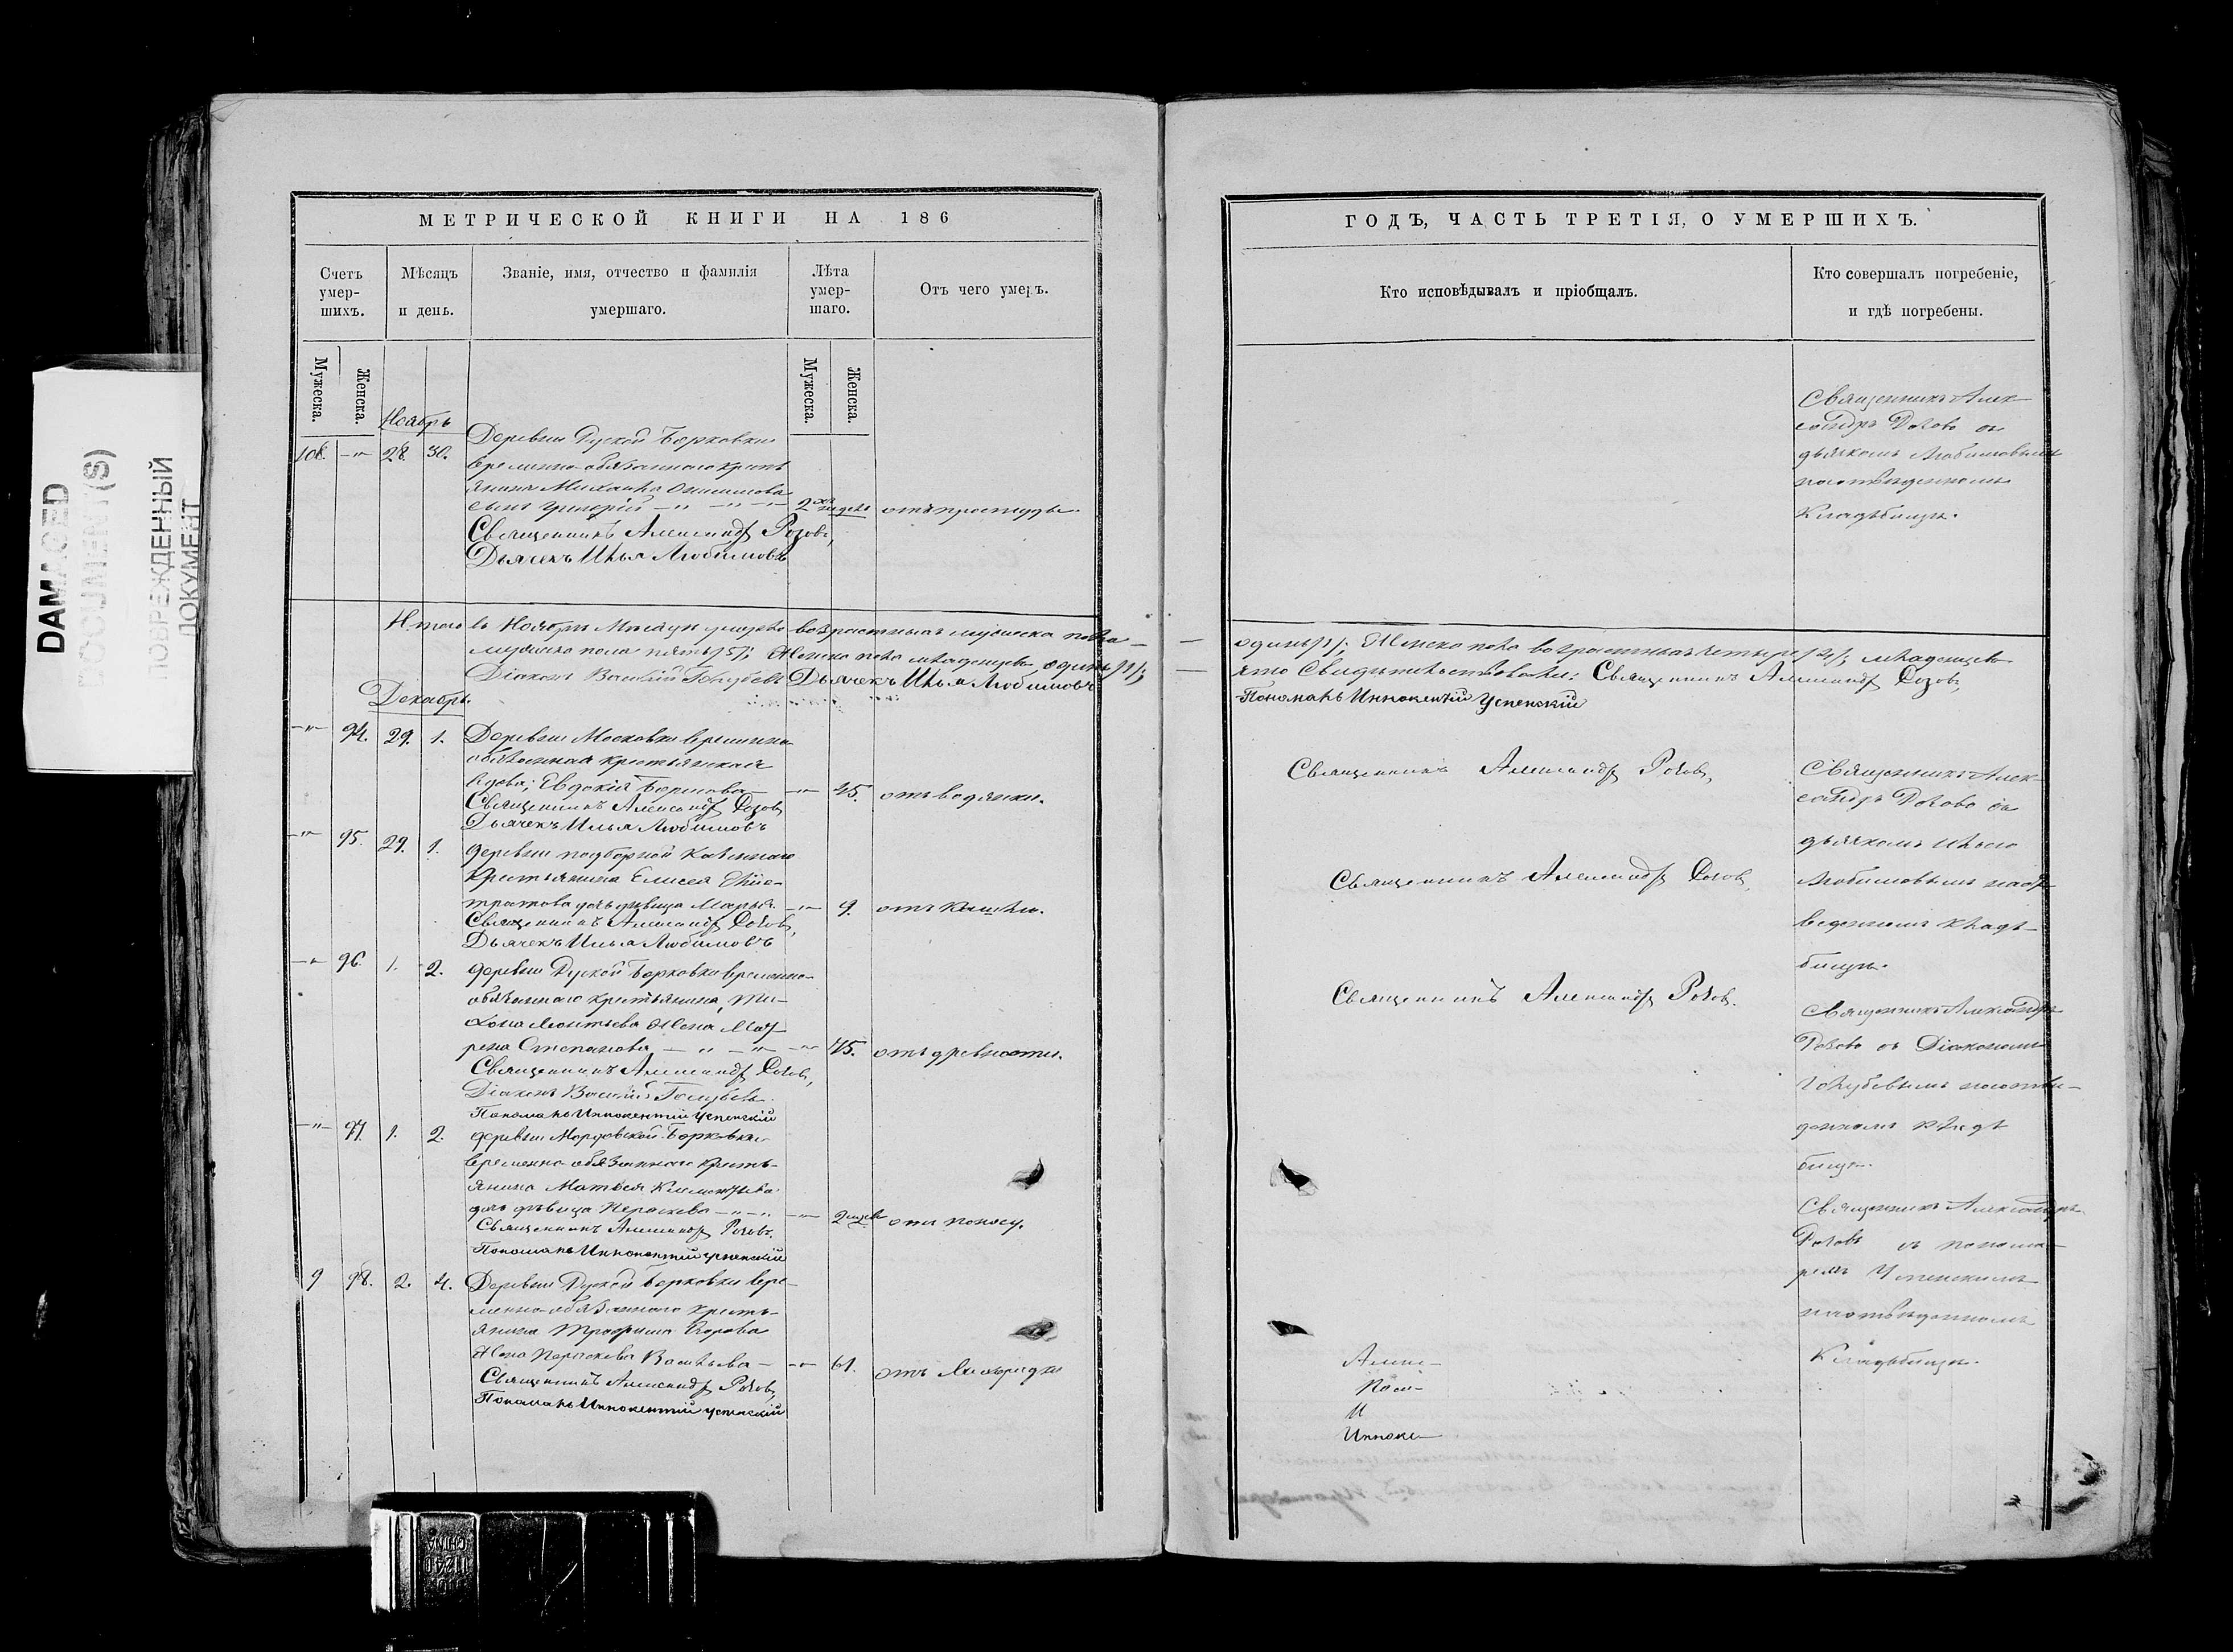 DAMAGED
DOCUMENT(S)
ПОВРЕЖДЕННЫЙ
ДОКУМЕНТ
МЕТРИЧЕСКОЙ КНИГИ НА 186
Счетъ умер-шихъ.
Мѣсяцъ и день.
Званіе, имя, отчество и фамилія умершаго.
Лѣта умер-шаго.
Отъ чего умеръ.
Мужеска.
Женска.
Мужеска.
Женска.
Ноябрь
108. 28. 30. Деревни Русской Борковки
временно-обязаннаго крест
янина Михаила Онисимова
сынъ Григорій 2хъ недель отъ простуды.
Священникъ Александръ Розовъ,
Дьячекъ Илья Любимовъ
Итого въ Ноябрѣ Мѣсяцѣ умерло возрастныхъ мужеска пола
мужеска пола пять /5/; Женска пола младенцевъ одинъ /1/;
Діаконъ Василій Голубевъ Дьячекъ Илья Любимовъ
Декабрь.
94. 29. 1. Деревни Московки временно
обязанная крестьянская
вдова, Евдокія Борисова 45. отъ водянки.
Священникъ Александръ Розовъ
Дьячекъ Илья Любимовъ
95. 29. 1. деревни подборной казеннаго
крестьянина Елисея
дочь дѣвица Марья 9. отъ кашлю.
Священникъ Александръ Розовъ,
Дьячекъ Илья Любимовъ
96. 1. 2. деревни Русской Борковки временно-
обязаннаго крестьянина, Ти-
хона Леонтьева жена Мат-
рена Степанова 75. отъ древности.
Священникъ Александръ Розовъ,
Діаконъ Василій Голубевъ.
Пономарь Иннокентій Успенскій
97. 1. 2. деревни Мордовской Борковки
временно обязаннаго кресть-
янина Матвея Клементьева
дочь дѣвица Параскева 2 отъ поносу.
Священникъ Александръ Розовъ.
Пономарь Иннокентій Успенскій
9 98. 2. 4. Деревни Русской Борковки вре-
менно-обязаннаго кресть-
янина Трофима Егорова
жена Параскева Васильева 61. отъ лихорадки
Священникъ Александръ Розовъ,
Пономарь Иннокентій Успенскій
ГОДЪ, ЧАСТЬ ТРЕТІЯ, О УМЕРШИХЪ.
Кто исповѣдывалъ и пріобщалъ.
Кто совершалъ погребеніе,
и гдѣ погребены.
Священникъ Алек-
сандръ Розовъ съ
дьячкомъ Любимовымъ
наотведенномъ
Кладбищѣ.
одинъ /1/; Женска пола возрастныхъ четыре /4/; младенцевъ
что Свидѣтельствовали: Священникъ Александръ Розовъ,
Пономарь Иннокентій Успенскій
Священникъ Александръ Розовъ,
Священникъ Алек-
сандръ Розовъ съ
дьячкомъ Ильею
Священникъ Александръ Розовъ,
Любимовымъ наот-
веденномъ клад-
бищѣ.
Священникъ Александръ Розовъ.
Священникъ Александръ
Розовъ съ Діакономъ
Голубевымъ наотве-
денномъ клад
бищѣ.
Священникъ Александръ
Розовъ съ понома-
ремъ Успенскимъ
наотведенномъ
Кладбищѣ.
И
Инноке-